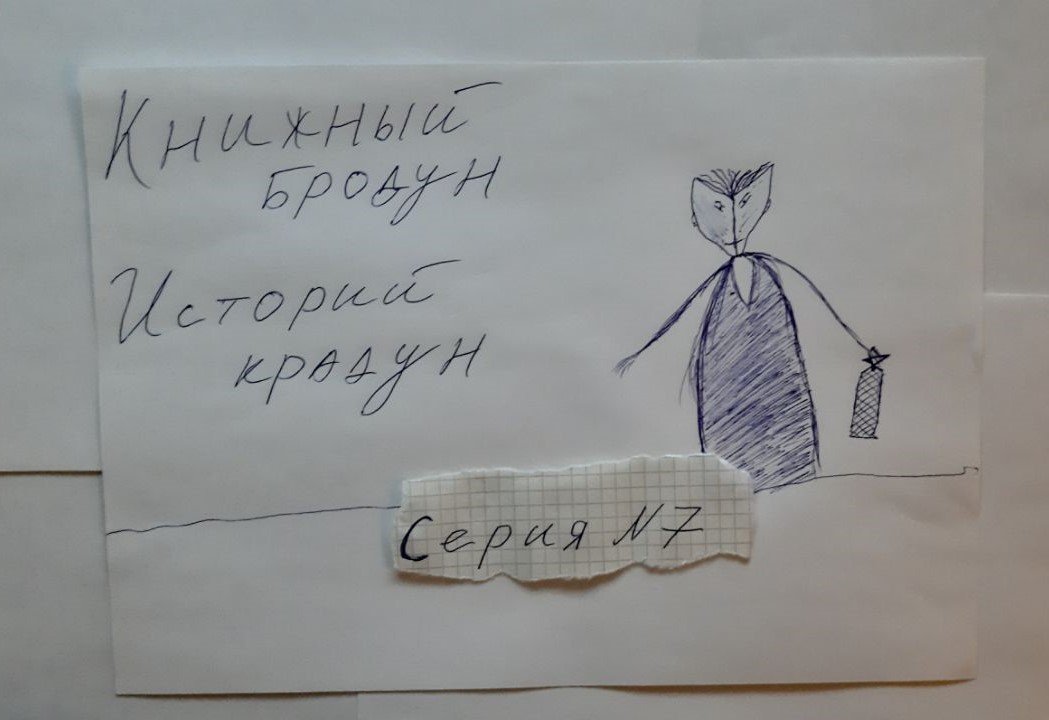 Книжный
бродун
Историй
крадун
Серия N7